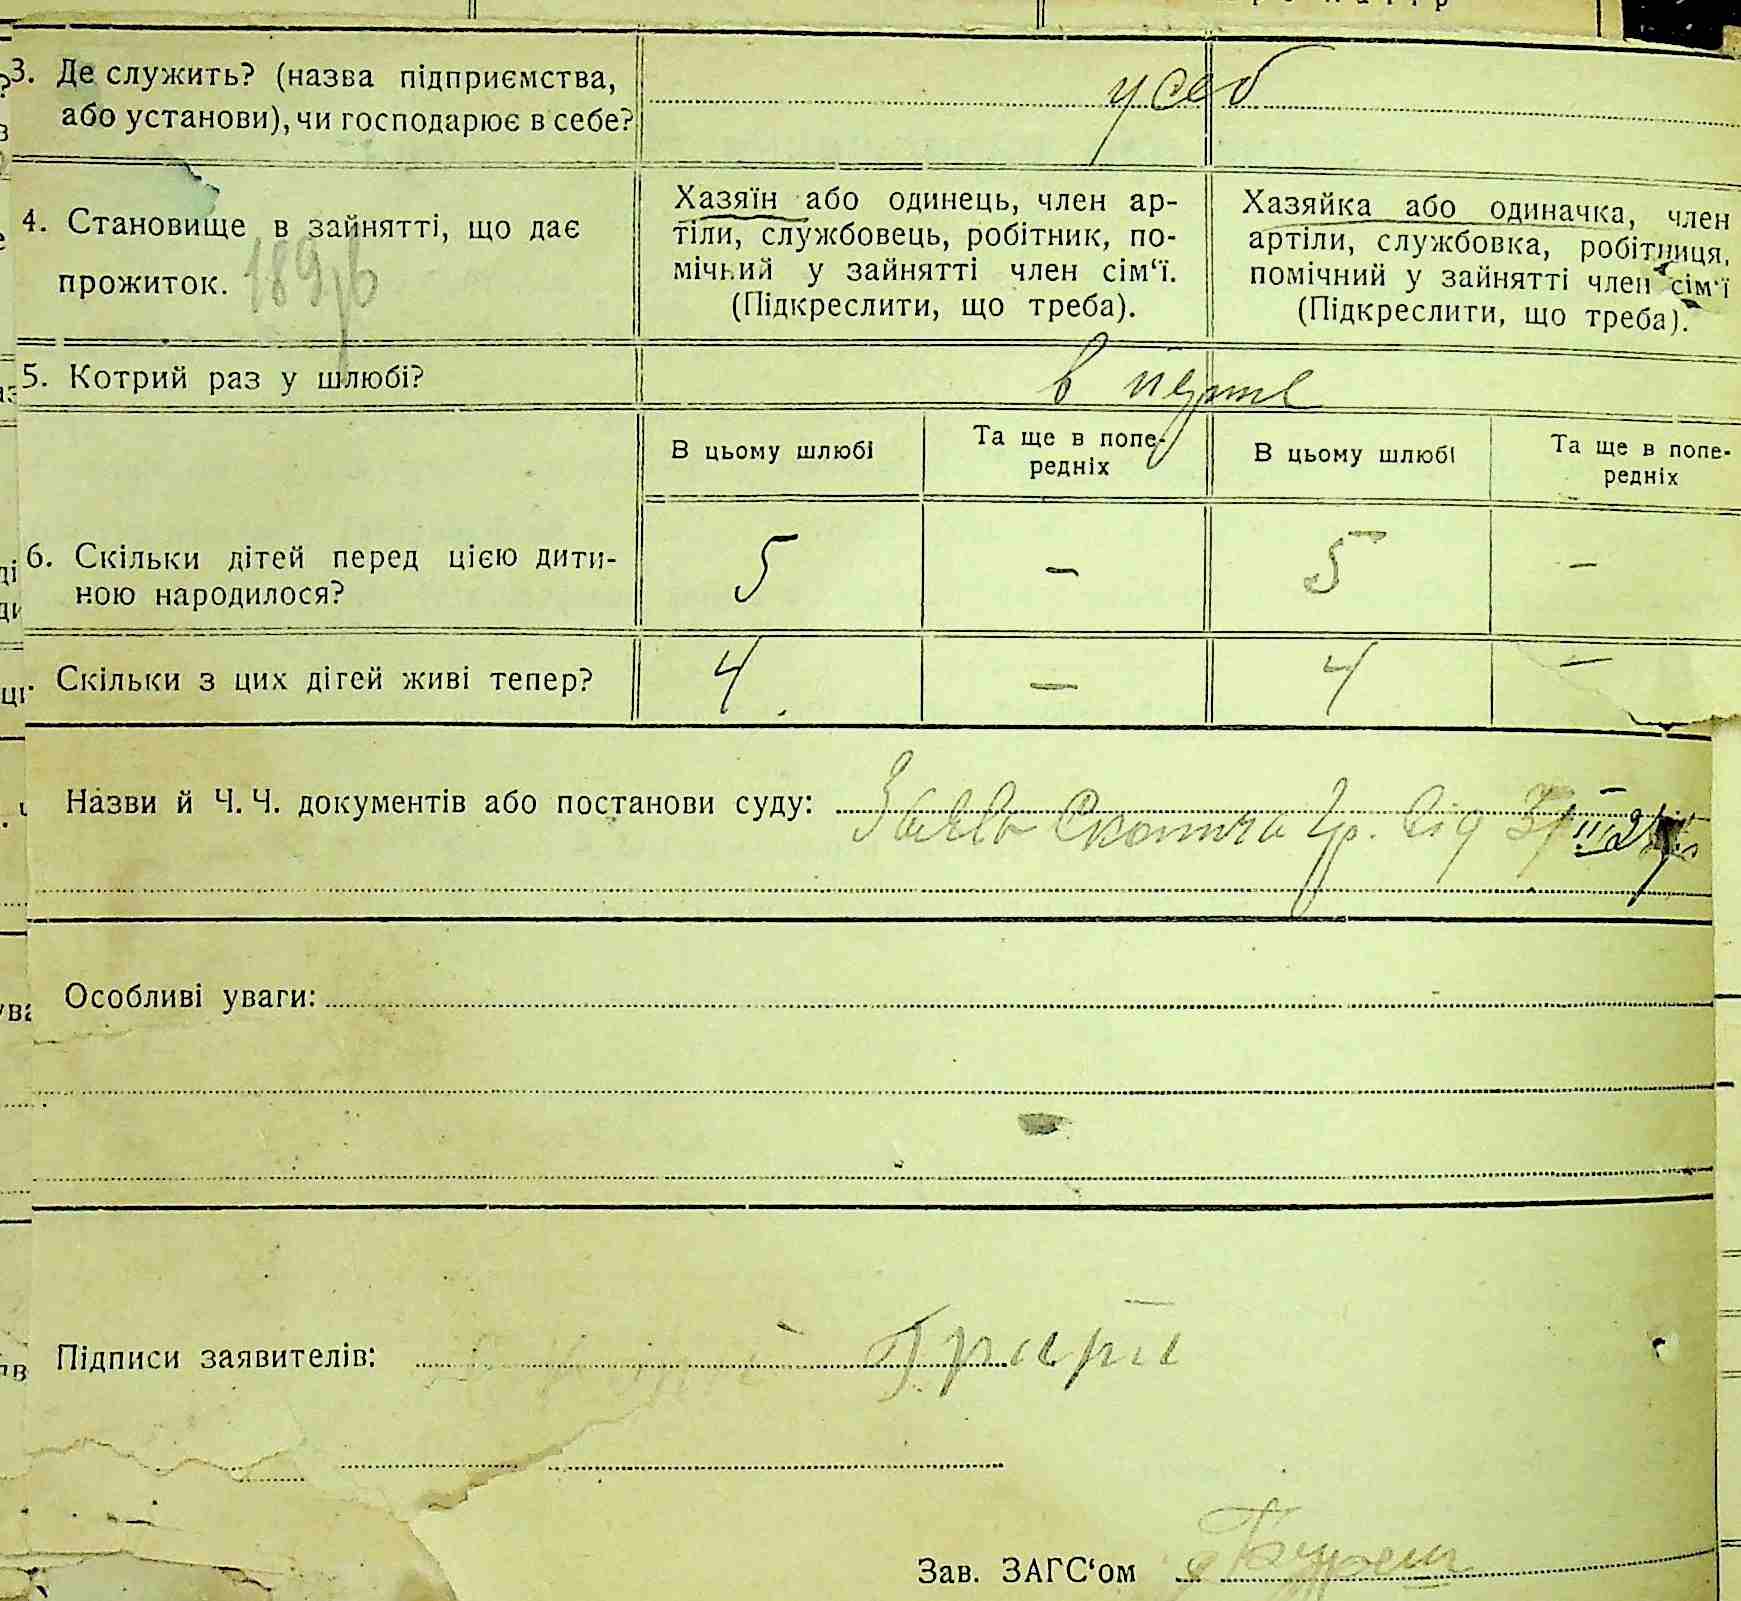 3. Де служить? (назва підприємства,
або установи), чи господарює в себе?
у себ
4. Становище в зайнятті, що дає
прожиток.
Хазяїн або одинець, член ар-
тіли, службовець, робітник, по-
мічний у зайнятті член сім‘ї.
(Підкреслити, що треба).
Хазяйка або одиначка, член
артіли, службовка, робітниця,
помічний у зайнятті член сім‘ї
(Підкреслити, що треба).
5. Котрий раз у шлюбі?
в перше
В цьому шлюбі
Та ще в попе-
редніх
В цьому шлюбі
Та ще в попе-
редніх
6. Скільки дітей перед цією дити-
ною народилося?
5 – 5 –
Скільки з цих дітей живі тепер?
4 – 4 –
Назви й Ч. Ч. документів або постанови суду: Заява гр. від
Особливі уваги:
Підписи заявителів:
Зав. ЗАГС‘ом